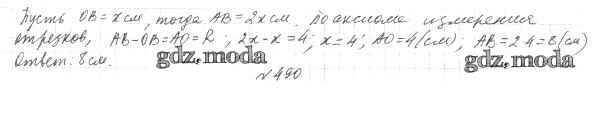 Пусть OB = x см, тогда AB = 2x см. По аксиоме измерения
отрезков, AB-OB=AO=R; 2x-x=4; x=4; AO=4(см); AB=2·4=8(см)
gdz.moda
Ответ: 8 см.
gdz.moda
№490